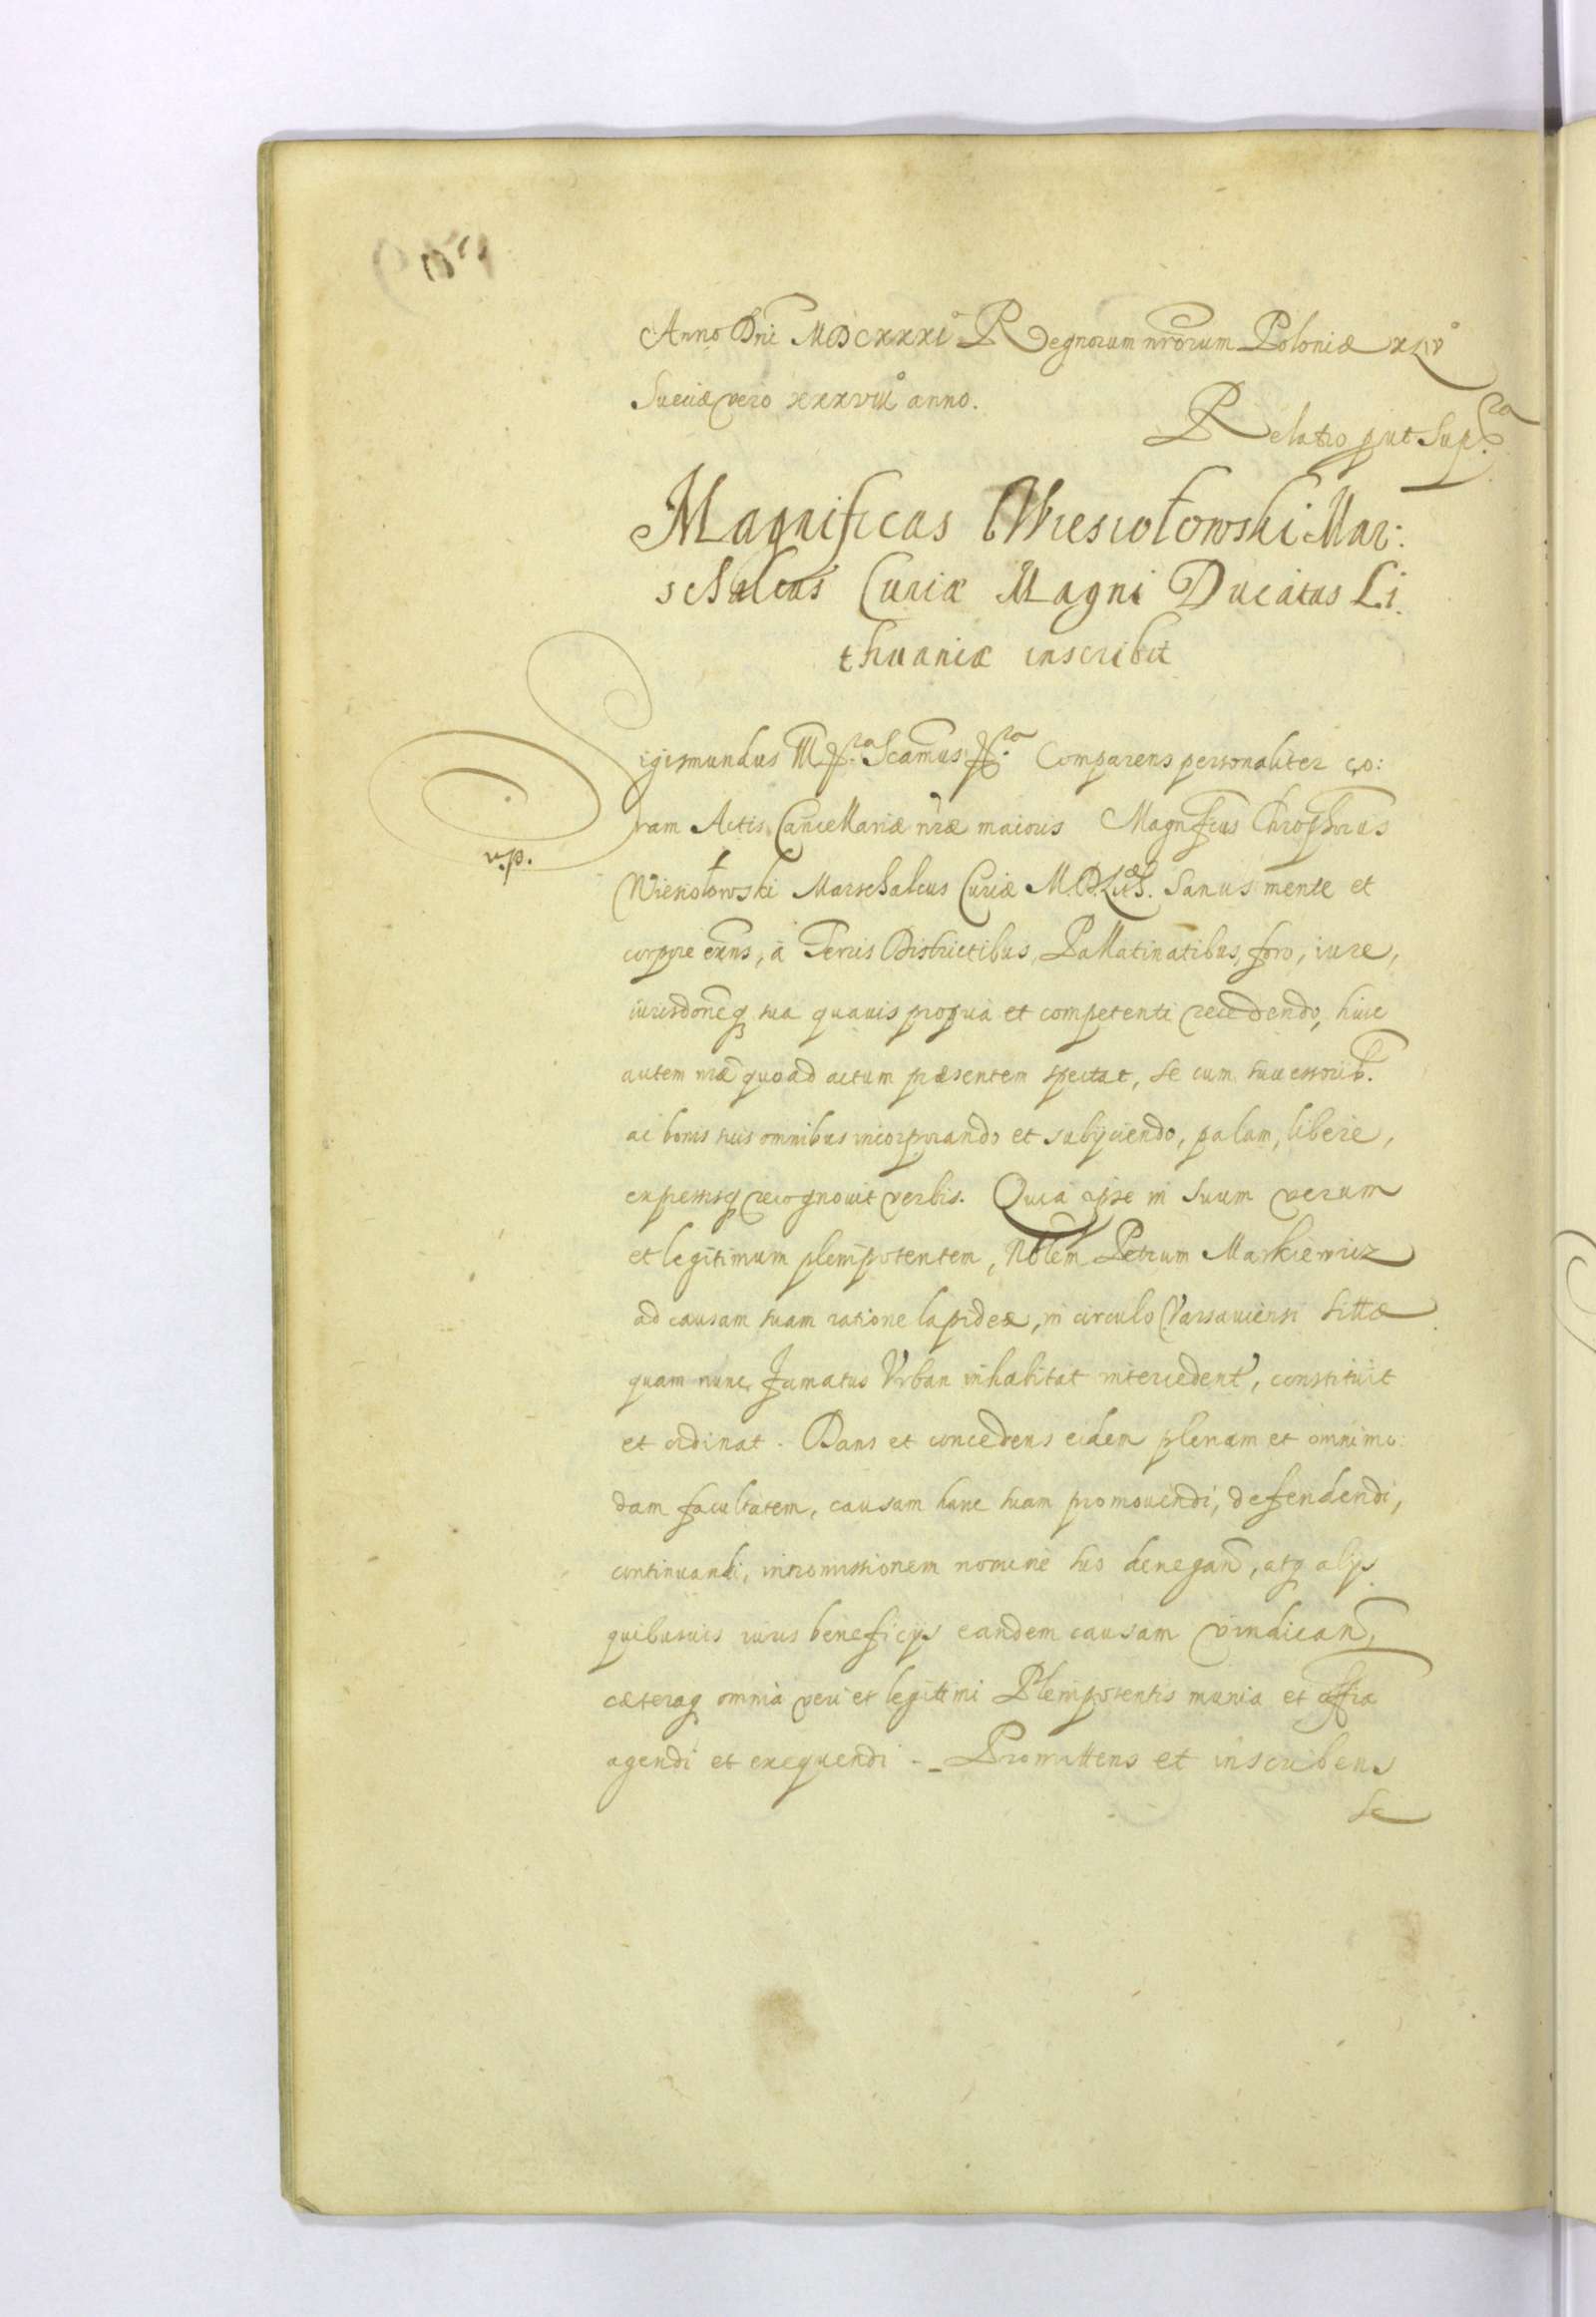 Anno Dni MDCXXXI° Regnorum nrorum Poloniæ XLIV°
Sueciæ vero XXXVIII° anno.
Relatio put Supra
Magnificus Wiesiołowski Mar:
schalcus Curiæ Magni Ducatus Li
thuaniæ inscribit
Sigismundus III Scamus Comparens personaliter co:
ram Actis Cancellariæ nræ maioris Magnificus Chrophorus
v.p.
Wiesiołowski Marschalcus Curiæ M.D.Lith. Sanus mente et
corpore exns, à Terris Districtibus, Pallatinatibus, foro, iure,
iurisdoneq sua quavis propria et competenti recedendo, huic
autem nræ quoad actum præsentem spectat, se cum successorib.
ac bonis suis omnibus incorporando et subijciendo, palam, libere,
expressisq recognovit verbis. Quia ipse in Suum verum
et legitimum plenipotentem, Noblem Petrum Markiewicz
ad causam suam ratione lapideæ, in circulo Varsauiensi sittæ
quam nunc famatus Vrban inhabitat intercedent, constituit
et ordinat. Dans et concedens eidem plenam et omnimo:
dam facultatem, causam hanc suam promovendi, defendendi,
continuandi, intromissionem nomine suo denegand, atq alijs
quibusuis iuris beneficijs eandem causam vindicand,
cæteraq omnia veri et legittimi Plenipotentis munia et offia
agendi et exequendi. - Promittens et inscribens
se